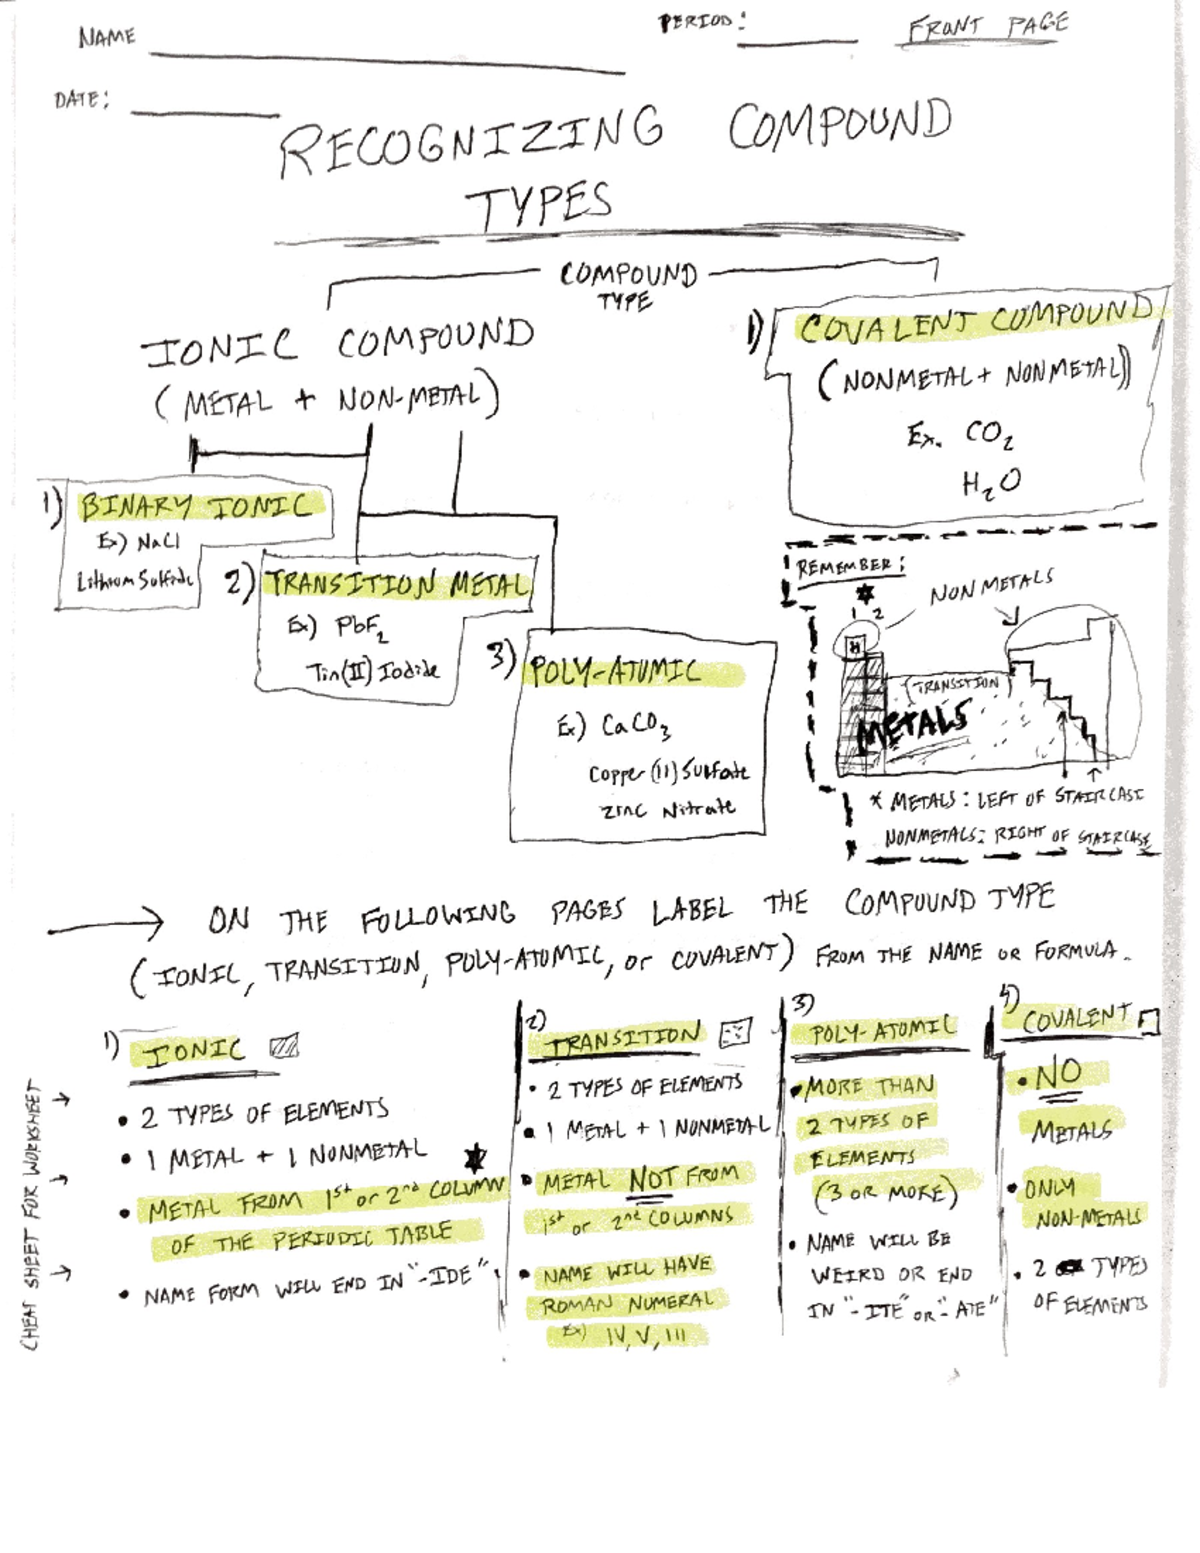 NAME
PERIOD:
FRONT PAGE
DATE:
RECOGNIZING COMPOUND
TYPES
COMPOUND
TYPE
IONIC COMPOUND
(METAL + NON-METAL)
1) COVALENT COMPOUND
(NONMETAL + NONMETAL)
Ex. CO2
H2O
1) BINARY IONIC
Ex) NaCl
Lithium Sulfide
2) TRANSITION METAL
Ex) PbF2
Tin(II) Iodide
3) POLY-ATOMIC
Ex) CaCO3
Copper (II) Sulfate
Zinc Nitrate
REMEMBER:
1 2
NONMETALS
H
(TRANSITION)
METALS
* METALS: LEFT OF STAIRCASE
NONMETALS: RIGHT OF STAIRCASE
ON THE FOLLOWING PAGES LABEL THE COMPOUND TYPE
(IONIC, TRANSITION, POLY-ATOMIC, or COVALENT) FROM THE NAME OR FORMULA.
CHEAT SHEET FOR WORKSHEET
1) IONIC
• 2 TYPES OF ELEMENTS
• 1 METAL + 1 NONMETAL
• METAL FROM 1st or 2nd COLUMN
OF THE PERIODIC TABLE
• NAME FORM WILL END IN "-IDE"
2) TRANSITION
• 2 TYPES OF ELEMENTS
• 1 METAL + 1 NONMETAL
• METAL NOT FROM
1st or 2nd COLUMNS
• NAME WILL HAVE
ROMAN NUMERAL
Ex) IV, V, III
3) POLY-ATOMIC
• MORE THAN
2 TYPES OF
ELEMENTS
(3 OR MORE)
• NAME WILL BE
WEIRD OR END
IN "-ITE" OR "-ATE"
4) COVALENT
• NO
METALS
• ONLY
NON-METALS
• 2 TYPES
OF ELEMENTS